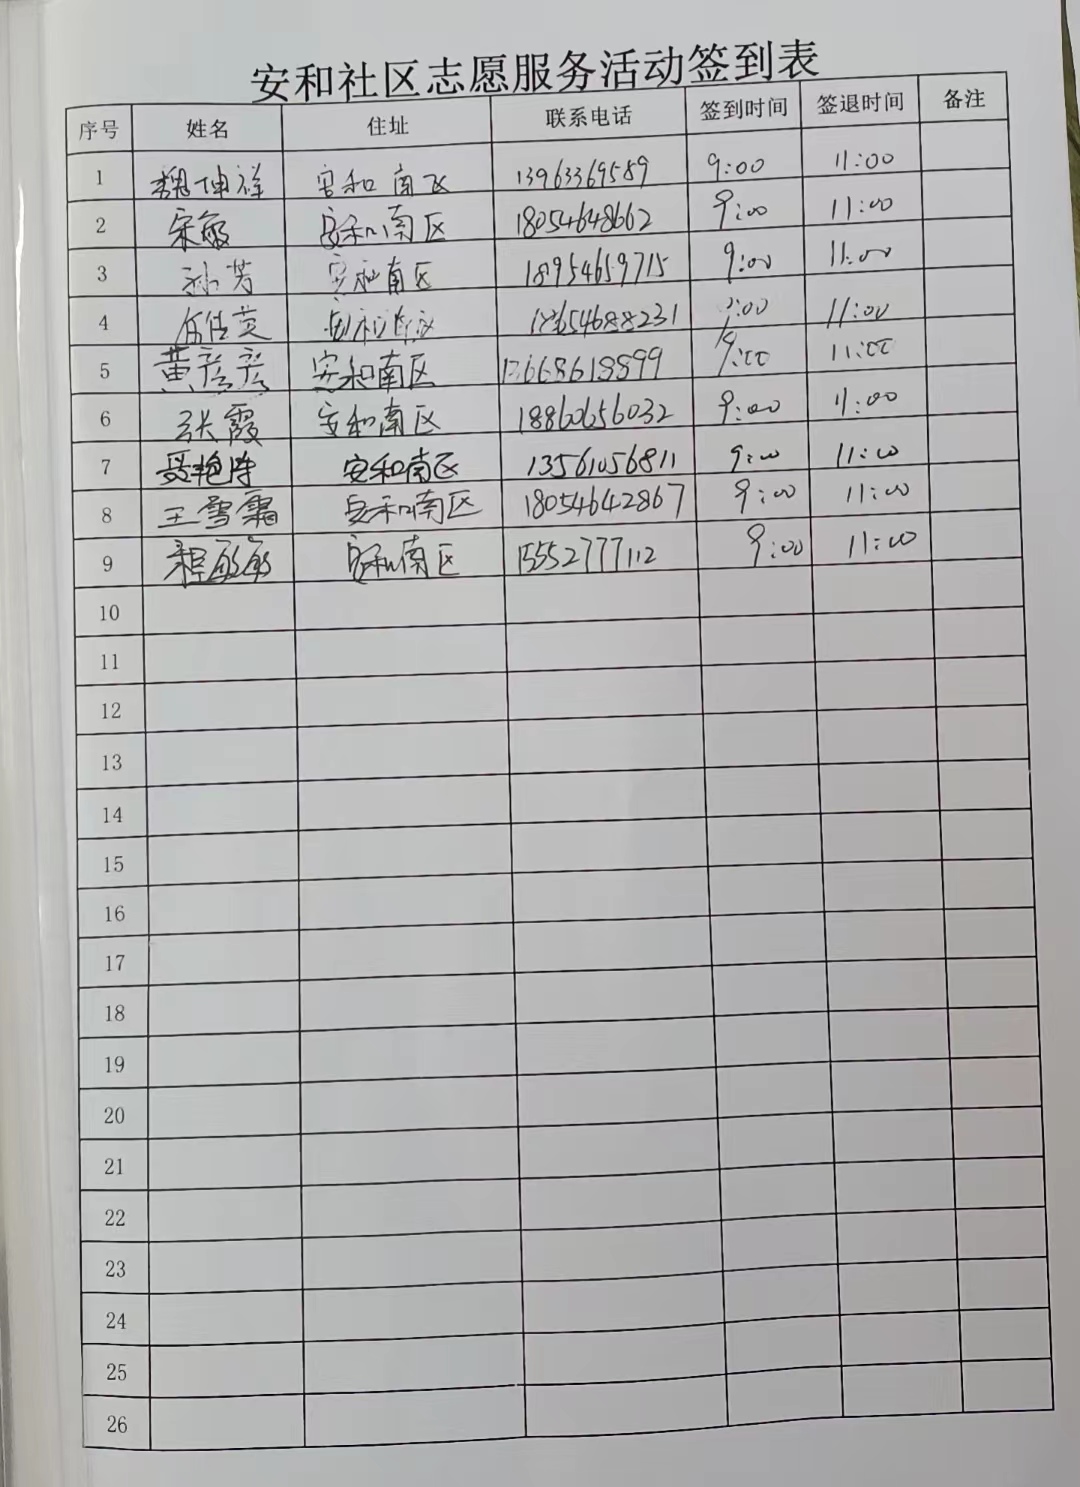 安和社区志愿服务活动签到表
序号 姓名 住址 联系电话 签到时间 签退时间 备注
1 魏坤祥 安和南区 13963369589 9:00 11:00
2 宋敏 安和南区 18054648662 9:00 11:00
3 孙芳 安和南区 18954659715 9:00 11:00
4 安和南区 18654688231 9:00 11:00
5 黄彦彦 安和南区 13668618899 9:00 11:00
6 张霞 安和南区 18860656032 9:00 11:00
7 聂艳萍 安和南区 13561056811 9:00 11:00
8 王雪霜 安和南区 18054642867 9:00 11:00
9 程敏敏 安和南区 15552777112 9:00 11:00
10
11
12
13
14
15
16
17
18
19
20
21
22
23
24
25
26